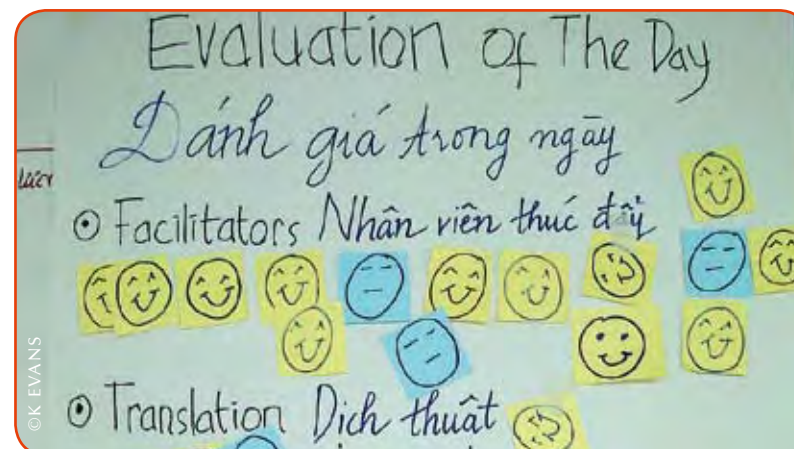 Evaluation of The Day
Đánh giá trong ngày
Facilitators Nhân viên thúc đẩy
Translation Dịch thuật
©K EVANS